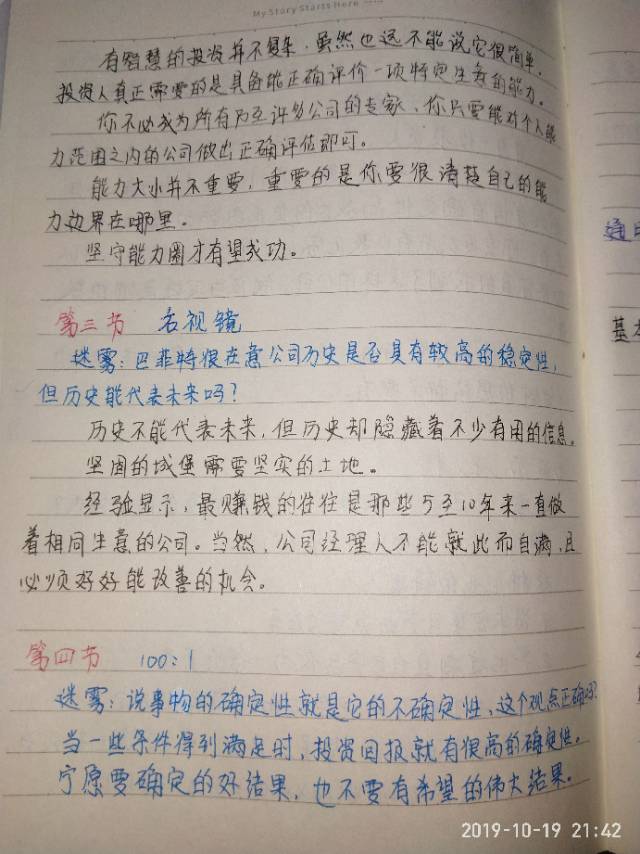 My Story Starts Here
有智慧的投资并不复杂，虽然也远不能说它很简单，
投资人真正需要的是具备能正确评价一项特定生意的能力。
你不必成为所有乃至许多公司的专家，你只要能对个人能
力范围之内的公司做出正确评估即可。
能力大小并不重要，重要的是你要很清楚自己的能
力边界在哪里。
坚守能力圈才有望成功。
第三节 后视镜
迷雾：巴菲特很在意公司历史是否具有较高的稳定性，
但历史能代表未来吗？
历史不能代表未来，但历史却隐藏着不少有用的信息。
坚固的城堡需要坚实的土地。
经验显示，最赚钱的往往是那些5至10年来一直做
着相同生意的公司。当然，公司经理人不能就此而自满，且
必须好好能改善的机会。
第四节 100：1
迷雾：说事物的确定性就是它的不确定性，这个观点正确吗？
当一些条件得到满足时，投资回报就有很高的确定性。
宁愿要确定的好结果，也不要有希望的伟大结果。
基本
2019-10-19 21:42